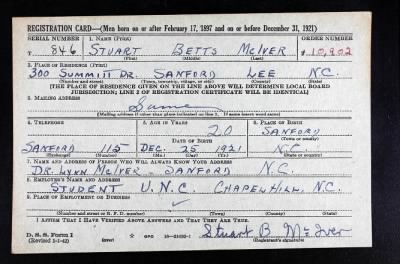 REGISTRATION CARD—(Men born on or after February 17, 1897 and on or before December 31, 1921)
SERIAL NUMBER 1. NAME (Print) ORDER NUMBER
T 846 STUART BETTS MCIVER 10,902
(First) (Middle) (Last)
2. PLACE OF RESIDENCE (Print)
300 SUMMITT DR. SANFORD LEE N.C.
(Number and street) (Town, township, village, or city) (County) (State)
[THE PLACE OF RESIDENCE GIVEN ON THE LINE ABOVE WILL DETERMINE LOCAL BOARD
JURISDICTION; LINE 2 OF REGISTRATION CERTIFICATE WILL BE IDENTICAL]
3. MAILING ADDRESS
Same
[Mailing address if other than place indicated on line 2. If same insert word same]
4. TELEPHONE 5. AGE IN YEARS 6. PLACE OF BIRTH
20 SANFORD
DATE OF BIRTH (Town or county)
SANFORD 115 DEC. 25 1921 N.C.
(Exchange) (Number) (Mo.) (Day) (Yr.) (State or country)
7. NAME AND ADDRESS OF PERSON WHO WILL ALWAYS KNOW YOUR ADDRESS
DR. LYNN MCIVER SANFORD N.C.
8. EMPLOYER'S NAME AND ADDRESS
STUDENT U.N.C. CHAPEL HILL, N.C.
9. PLACE OF EMPLOYMENT OR BUSINESS
(Number and street or R. F. D. number) (Town) (County) (State)
I AFFIRM THAT I HAVE VERIFIED ABOVE ANSWERS AND THAT THEY ARE TRUE.
D. S. S. Form 1
(Revised 1-1-42) (over) GPO Stuart B McIver
(Registrant's signature)